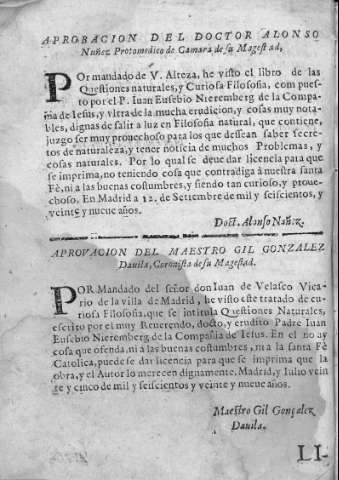 APROBACION DEL DOCTOR ALONSO
Nuñez Protomedico de Camara de su Magestad,
POr mandado de V. Alteza, he visto el libro de las
Questiones naturales, y Curiosa Filosofia, compues-
to por el P. Iuan Eusebio Nieremberg de la Compa-
ñia de Iesus, y vltra de la mucha erudicion, y cosas muy nota-
bles, dignas de salir a luz en Filosofia natural, que contiene,
juzgo ser muy prouechoso para los que dessean saber secre-
tos de naturaleza, y tener noticia de muchos Problemas, y
cosas naturales. Por lo qual se deue dar licencia para que
se imprima, no teniendo cosa que contradiga à nuestra santa
Fè, ni a las buenas costumbres, y siendo tan curioso, y proue-
choso. En Madrid a 12. de Setiembre de mil y seiscientos, y
veinte y nueue años.
Doct. Alonso Nuñez.
APROVACION DEL MAESTRO GIL GONZALEZ
Dauila, Coronista de su Magestad.
POR Mandado del señor don Iuan de Velasco Vica-
rio de la villa de Madrid, he visto este tratado de cu-
riosa Filosofia, que se intitula Questiones Naturales,
escrito por el muy Reuerendo, docto, y erudito Padre Iuan
Eusebio Nieremberg de la Compañia de Iesus. En el no ay
cosa que ofenda, ni a las buenas costumbres, ni a la santa Fè
Catolica, puede se dar licencia para que se imprima que la
obra, y el Autor lo merecen dignamente, Madrid, y Iulio vein
te y cinco de mil y seiscientos y veinte y nueue años.
Maestro Gil Gonçalez
Dauila.
LI-